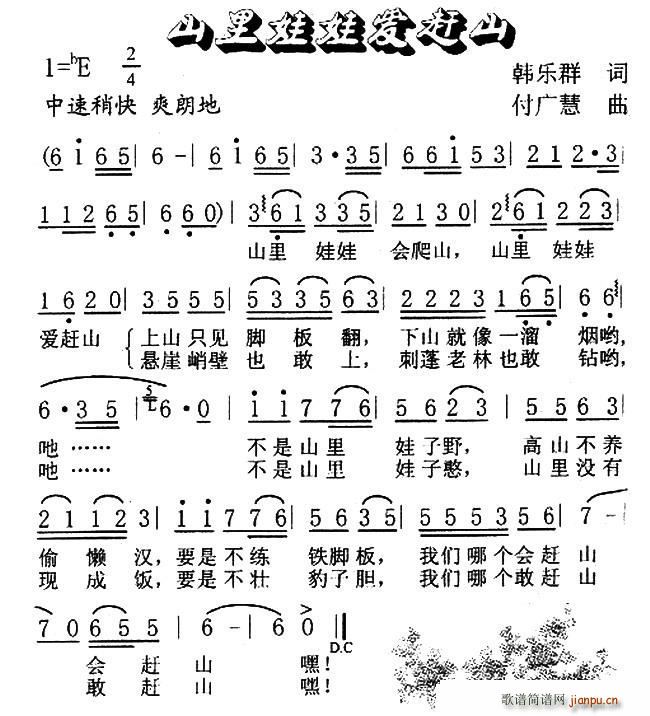 山里娃娃爱赶山
1=ᵇE 2/4
韩乐群 词
中速稍快 爽朗地
付广慧 曲
(6 i 6 5 | 6 - | 6 i 6 5 | 3 · 3 5 | 6 6 i 5 3 | 2 1 2 · 3 |
1 1 2 6 5 | 6 6 0) | 3 6 1 | 3 3 5 | 2 1 3 0 | 2 6 1 | 2 2 3 |
山里 娃娃 会爬山, 山里 娃娃
1 6 2 0 | 3 5 5 5 | 5 3 3 5 | 6 3 | 2 2 2 3 | 1 6 5 | 6 6 |
爱赶山 上山只见 脚 板 翻, 下山就像一溜 烟哟,
悬崖峭壁 也 敢 上, 刺蓬老林也敢 钻哟,
6 · 3 5 | 6 · 0 | i i 7 7 6 | 5 6 2 3 | 5 5 3 5 |
吔…… 不是山里 娃子野, 高山不养
吔…… 不是山里 娃子憨, 山里没有
2 1 1 2 3 | i i 7 7 6 | 5 6 3 5 | 5 5 5 3 5 6 | 7 - |
偷 懒 汉, 要是不练 铁脚板, 我们哪个会赶 山
现 成 饭, 要是不壮 豹子胆, 我们哪个敢赶 山
7 0 6 5 5 | i - | 6 - | 6 0 ‖
D.C
会赶 山 嘿!
敢赶 山 嘿!
歌谱简谱网
jianpu.cn